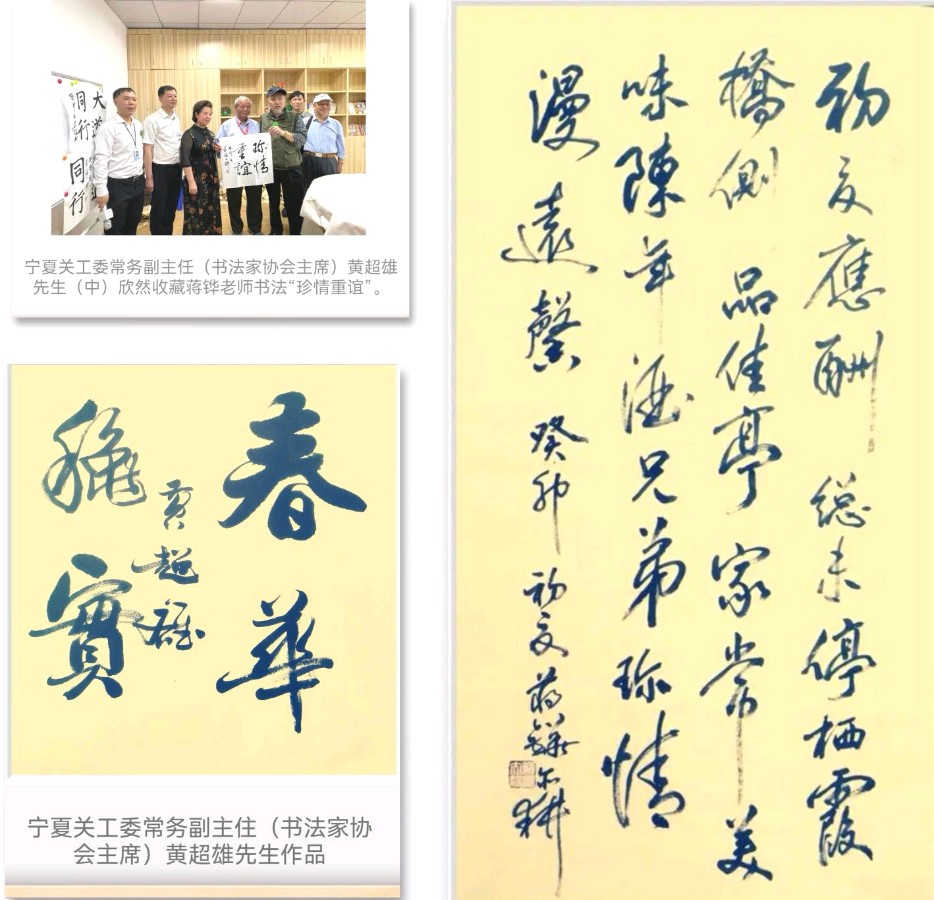 珍情
重誼
宁夏关工委常务副主任（书法家协会主席）黄超雄
先生（中）欣然收藏蒋铧老师书法“珍情重谊”。
春華
穐實
黄超雄
宁夏关工委常务副主住（书法家协
会主席）黄超雄先生作品
初夏應酬総未停栖霞
橋側品佳亭家常美
味陳年酒兄弟珍情
漫遠馨癸卯初夏蒋鏵